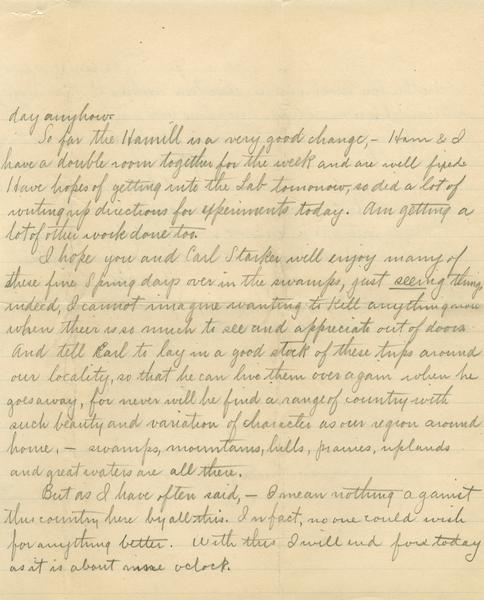 day anyhow.
So far the Hamill is a very good change, - Ham & I
have a double room together for the week and are well fixed.
Have hopes of getting into the Lab tomorrow, so did a lot of
writing up directions for experiments today. Am getting a
lot of other work done too.
I hope you and Earl Starker will enjoy many of
these fine Spring days over in the swamps, just seeing things,
indeed, I cannot imagine wanting to kill anything now
when there is so much to see and appreciate out of doors.
And tell Earl to lay in a good stock of these trips around
our locality, so that he can live them over again when he
goes away, for never will he find a range of country with
such beauty and variation of character as our region around
home, - swamps, mountains, hills, prairies, uplands
and great waters are all there.
But as I have often said, - I mean nothing against
this country here by all this. In fact, no one could wish
for anything better. With this I will end for today
as it is about nine oclock.